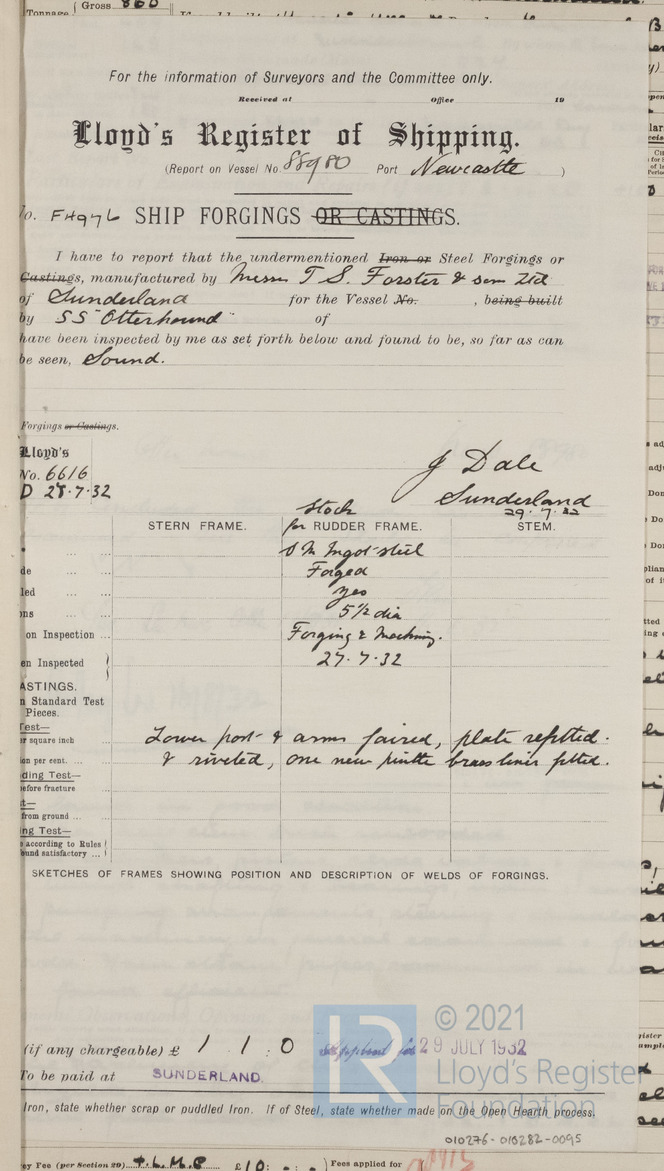 Tonnage { Gross 860
For the information of Surveyors and the Committee only.
Received at Office 19
Lloyd's Register of Shipping.
(Report on Vessel No. 88980 Port Newcastle )
No. FH976 SHIP FORGINGS OR CASTINGS.
I have to report that the undermentioned Iron or Steel Forgings or
Castings, manufactured by Messrs T S. Forster & son Ltd
of Sunderland for the Vessel No. , being built
by SS "Otterhound" of
have been inspected by me as set forth below and found to be, so far as can
be seen, Sound.
Forgings or Castings.
Lloyd's
No. 6616
D 28.7.32
J Dale
Sunderland
29.7.32
Stock
STERN FRAME. for RUDDER FRAME. STEM.
S M Ingot steel
de Forged
led yes
ns 5½ dia
on Inspection Forging & Machning.
en Inspected 27.7.32
ASTINGS.
n Standard Test
Pieces.
Test—
r square inch Lower post & arms faired, plate refitted.
on per cent. & riveted, one new pintle brass liner fitted.
ding Test—
efore fracture
t—
from ground
ng Test—
according to Rules
ound satisfactory
SKETCHES OF FRAMES SHOWING POSITION AND DESCRIPTION OF WELDS OF FORGINGS.
(if any chargeable) £ 1 1 : 0 29 JULY 1932
To be paid at SUNDERLAND.
Iron, state whether scrap or puddled Iron. If of Steel, state whether made on the Open Hearth process.
LR © 2021
Lloyd's Register
Foundation
010276-010282-0095
ey Fee (per Section 29) + L.M.C £10 : Fees applied for